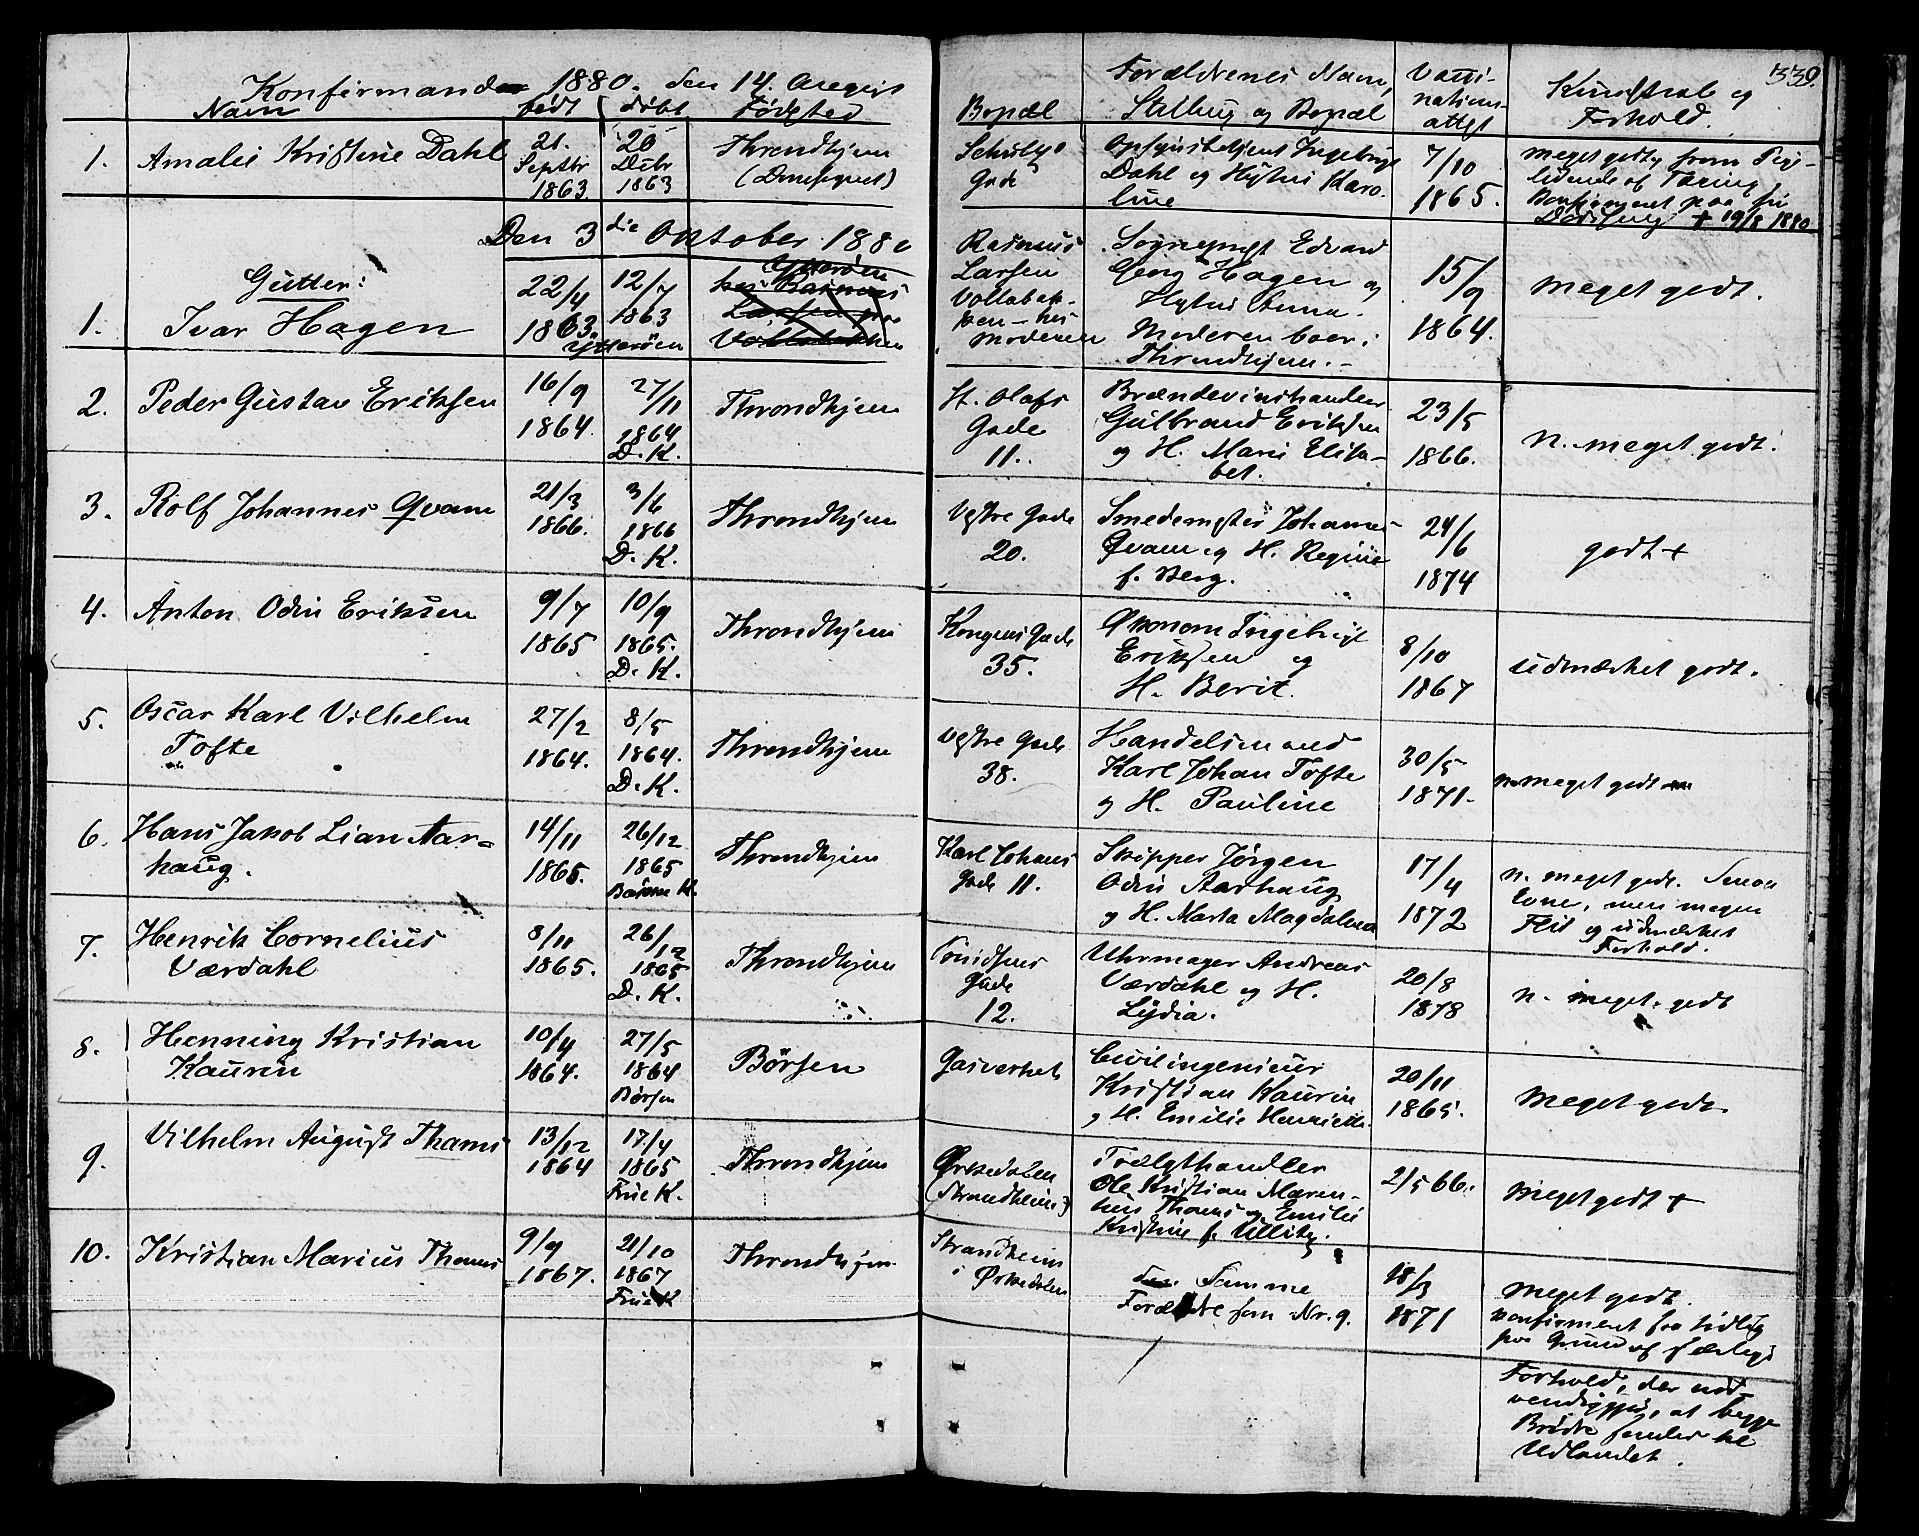 339.
Konfirmander 1880. den 14. August
Navn født døbt Fødested Bopæl Forældrenes Navn, Stilling og Bopæl Vacci-nations-attest Kundskab og Forhold.
1. Amalie Kristine Dahl
21. Septbr 1863
20 Debr 1863
Throndhjem
Gade
Dahl og Hustru Karo-
line
7/10
1865.
meget godt,
lidende af Tæring
Konfirmeret paa
+ 19/8 1880
Den 3die Oktober 1880
Gutter:
1. Ivar Hagen
22/4
1863.
Ytterøen
12/7
1863
Ytterøen
hos Rasmus
Larsen paa
Vollabakken
Rasmus
Larsen
Vollabak-
ken - hos
Moderen
Sogneprest Edvard
Georg Hagen og
Hustru Anna.
Moderen boer i
Throndhjem.
15/9
1864.
meget godt.
2. Peder Gustav Eriksen
16/9
1864.
27/11
1864
D. K.
Throndhjem
St. Olafs
Gade
11.
Brændevinshandler
Gulbrand Eriksen
og H. Marie Elisa-
bet.
23/5
1866.
n. meget godt.
3. Rolf Johannes Qvam
21/3
1866.
3/6
1866
D. K.
Throndhjem
Vestre Gade
20.
Smedemester Johannes
Qvam og H. Regine
f. Berg.
24/6
1874
godt +
4. Anton Odin Eriksen
9/7
1865
10/9
1865.
D. K.
Throndhjem
Kongens Gade
35.
Økonom Ingebrigt
Eriksen og
H. Berit.
8/10
1867
udmærket godt.
5. Oscar Karl Vilhelm
Tofte
27/2
1864.
8/5
1864.
D. K.
Throndhjem
Vestre Gade
38.
Handelsmand
Karl Johan Tofte
og H. Pauline
30/5
1871.
meget godt
6. Hans Jakob Lian Aar-
haug.
14/11
1865.
26/12
1865
Bakke K.
Throndhjem
Karl Johans
Gade 11.
Skipper Jørgen
Odin Aarhaug
og H. Marta Magdalena
17/4
1872
n. meget godt. Smaa
Evner, men megen
Flid og udmærket
Forhold.
7. Henrik Cornelius
Værdahl
8/11
1865.
26/12
1865
D. K.
Throndhjem
Gade
12.
Uhrmager Andreas
Værdahl og H.
Lydia.
20/8
1878
n. meget godt
8. Henning Kristian
Kaurin
10/4
1864.
27/5
1864
Børsen
Børsen
Gasverket
Civilingenieur
Kristian Kaurin
og H. Emilie Henriette.
20/11
1865.
meget godt
9. Vilhelm August Thams
13/12
1864
17/4
1865
Frue K.
Throndhjem
Ørkedalen
(Strandheim)
Trælasthandler
Ole Kristian Maren-
tius Thams og Emilie
Kristine f.
2/5 66.
meget godt +
10. Kristian Marius Thams
9/9
1867.
21/10
1867
Frue K
Throndhjem
Strandheim
i Ørkedalen
Samme
Forældre som Nr. 9.
18/3
1871
meget godt.
konfirmeret før tidlig
paa Grund af særlige
Forhold, der nød-
vendiggjør, at begge
Brødre sendes til
Udlandet.